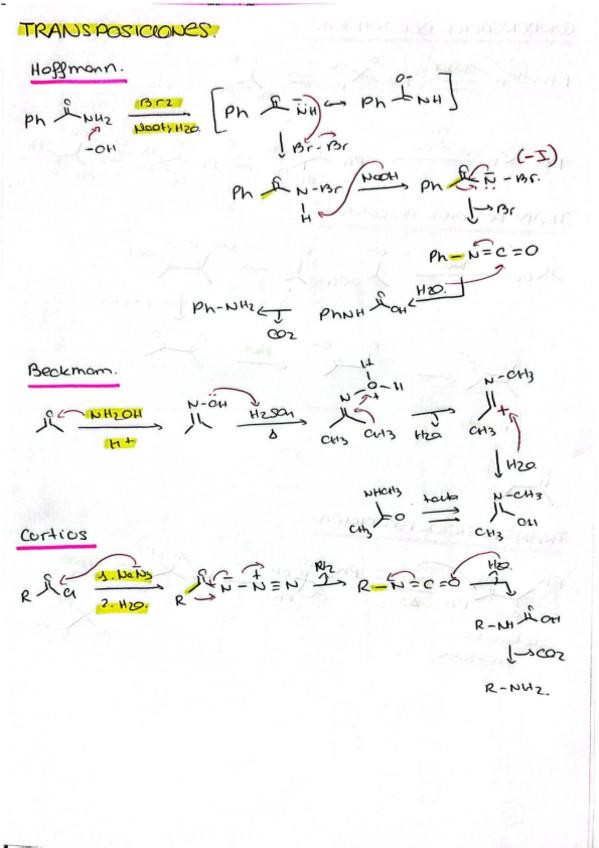 TRANSPOSICIONES.
Hoffmann.
Ph O NH2 Br2 NaOH, H2O. [ Ph O NH ↔ Ph O- NH ]
-OH
Br-Br
Ph O N-Br H NaOH Ph O N-Br. (-I)
→Br
Ph-N=C=O
H2O.
Ph-NH2 ← CO2 PhNH O OH
Beckmann.
O NH2OH H+ N-OH H2SO4 Δ N-O-H H + CH3 CH3 H2O N-CH3 + CH3
H2O
NHCH3 O CH3 tauto N-CH3 OH CH3
Curtios
R O Cl 1. NaN3 2. H2O. R O N-N≡N + R-N=C=O H2O.
R-NH O OH
→CO2
R-NH2.